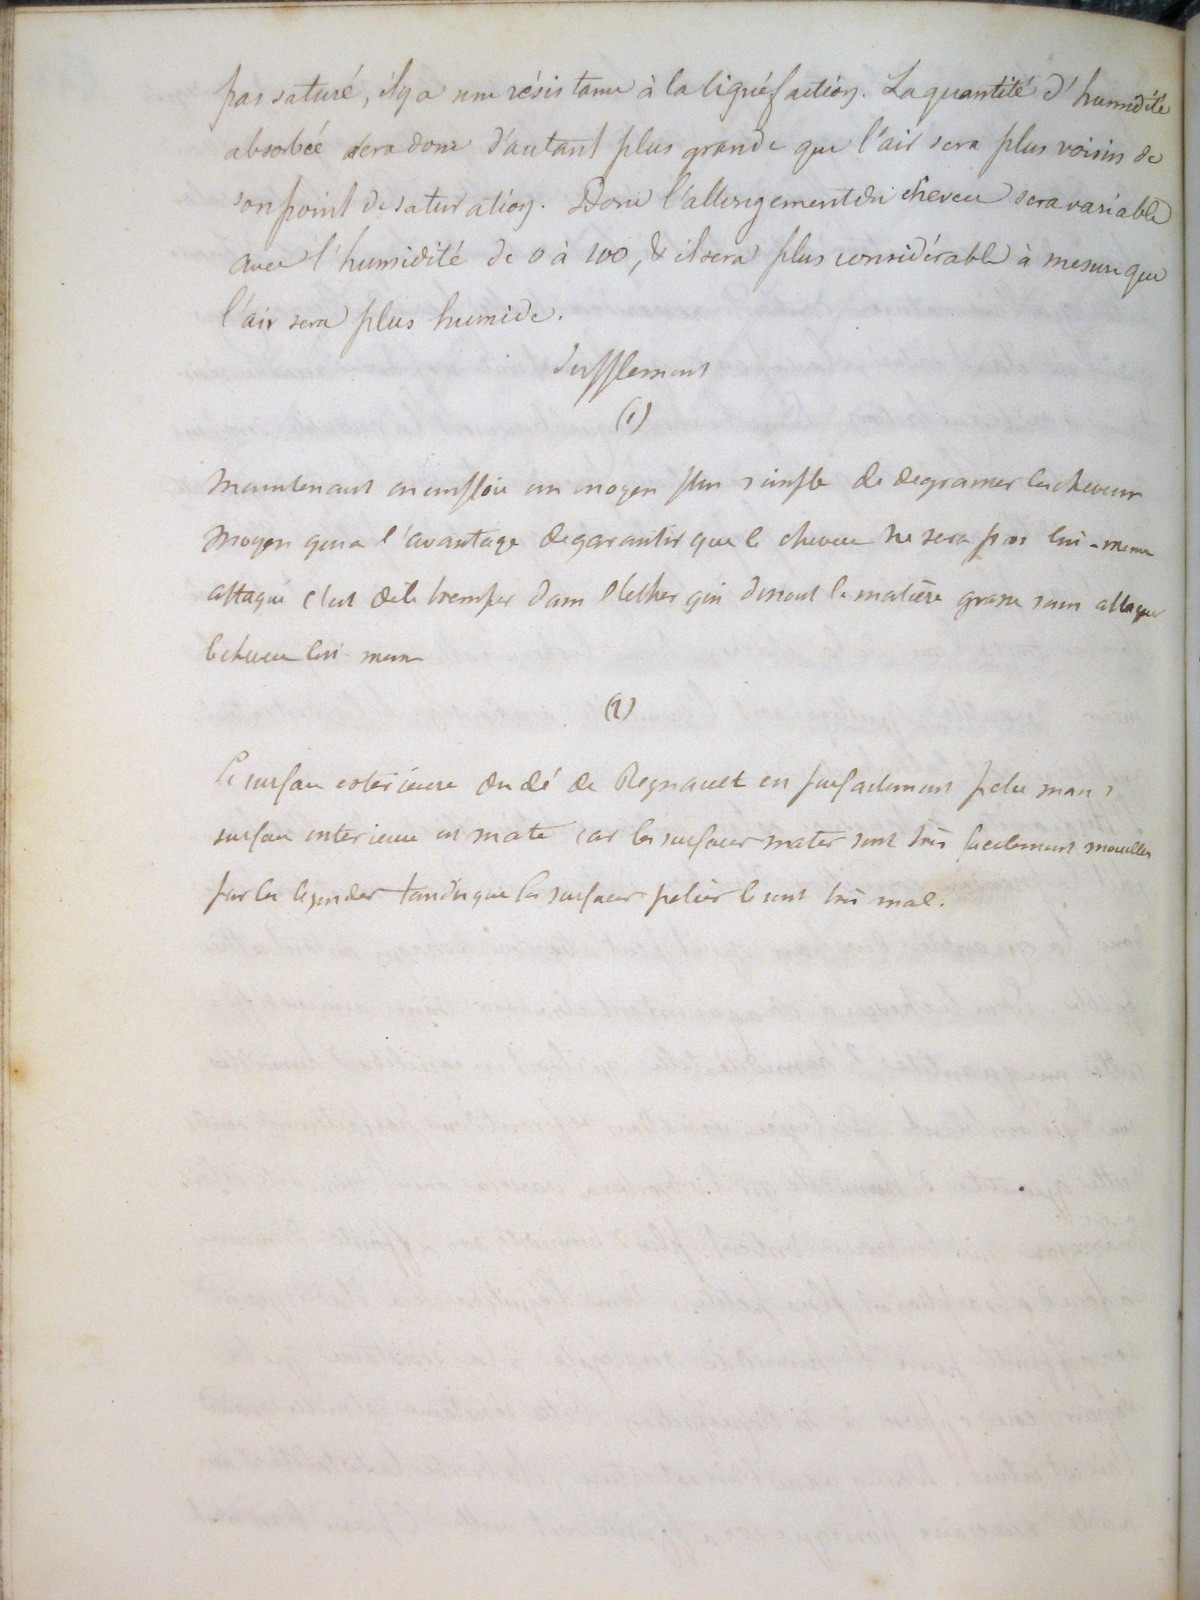 pas saturé, il y a une résistance à la liquéfaction. La quantité d'humidité
absorbée sera donc d'autant plus grande que l'air sera plus voisin de
son point de saturation. Donc l'allongement du cheveu sera variable
avec l'humidité de 0 à 100, & il sera plus considérable à mesure que
l'air sera plus humide.
Supplement
(1)
Maintenant on emploie un moyen plus simple de degraisser les cheveux
moyen qui a l'avantage de garantir que le cheveu ne sera pas lui-meme
attaqué c'est de le tremper dans l'ether qui dissout la matière grasse sans attaquer
le cheveu lui meme
(2)
La surface exterieure du dé de Regnault est parfaitement polie mais s
surface interieure est mate car les surfaces mates sont très facilement mouillées
par les liquides tandis que les surfaces polies le sont très mal.